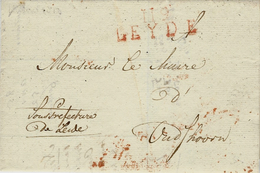 LEYDE
Monsieur le Maire
d'
Sousprefecture
de Leide
Oudshoorn